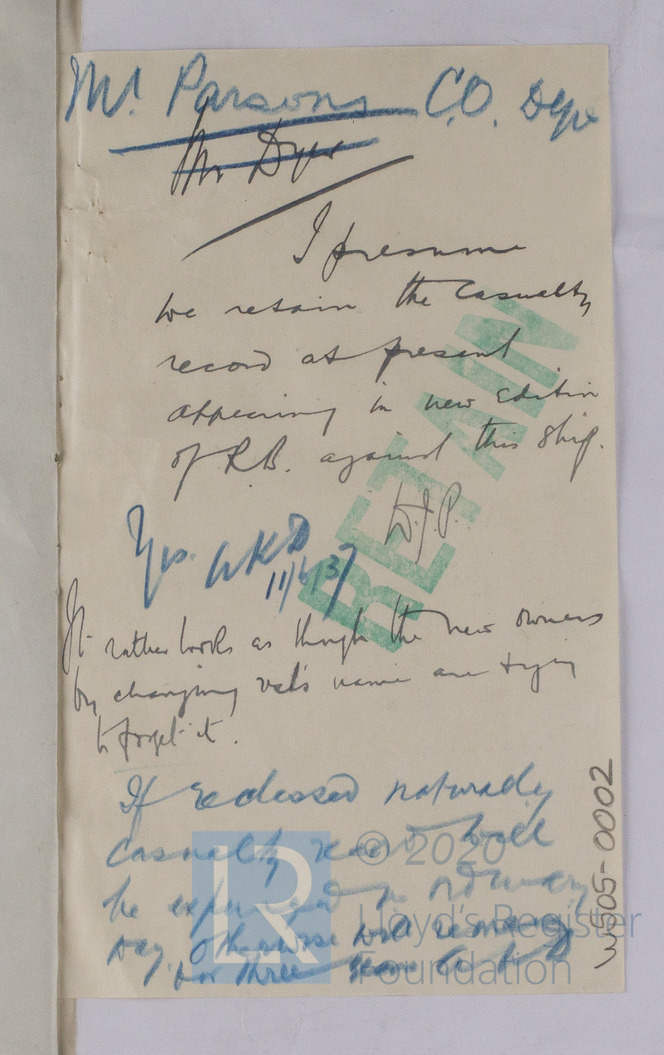 Mr. Parsons C.O. Dept
Mr Dyer
I presume
we retain the Casualty
record at present
appearing in new Edition
of R.B. against this ship.
RETAIN
Yes.
11/6/37
It rather looks as though the new owners
by changing vsl's name are trying
to forget it.
If reclassed naturally
Casualty record will
be expunged in ordinary
way, otherwise will remain
for three
3505-0002
© 2020
LR
Lloyd's Register
Foundation